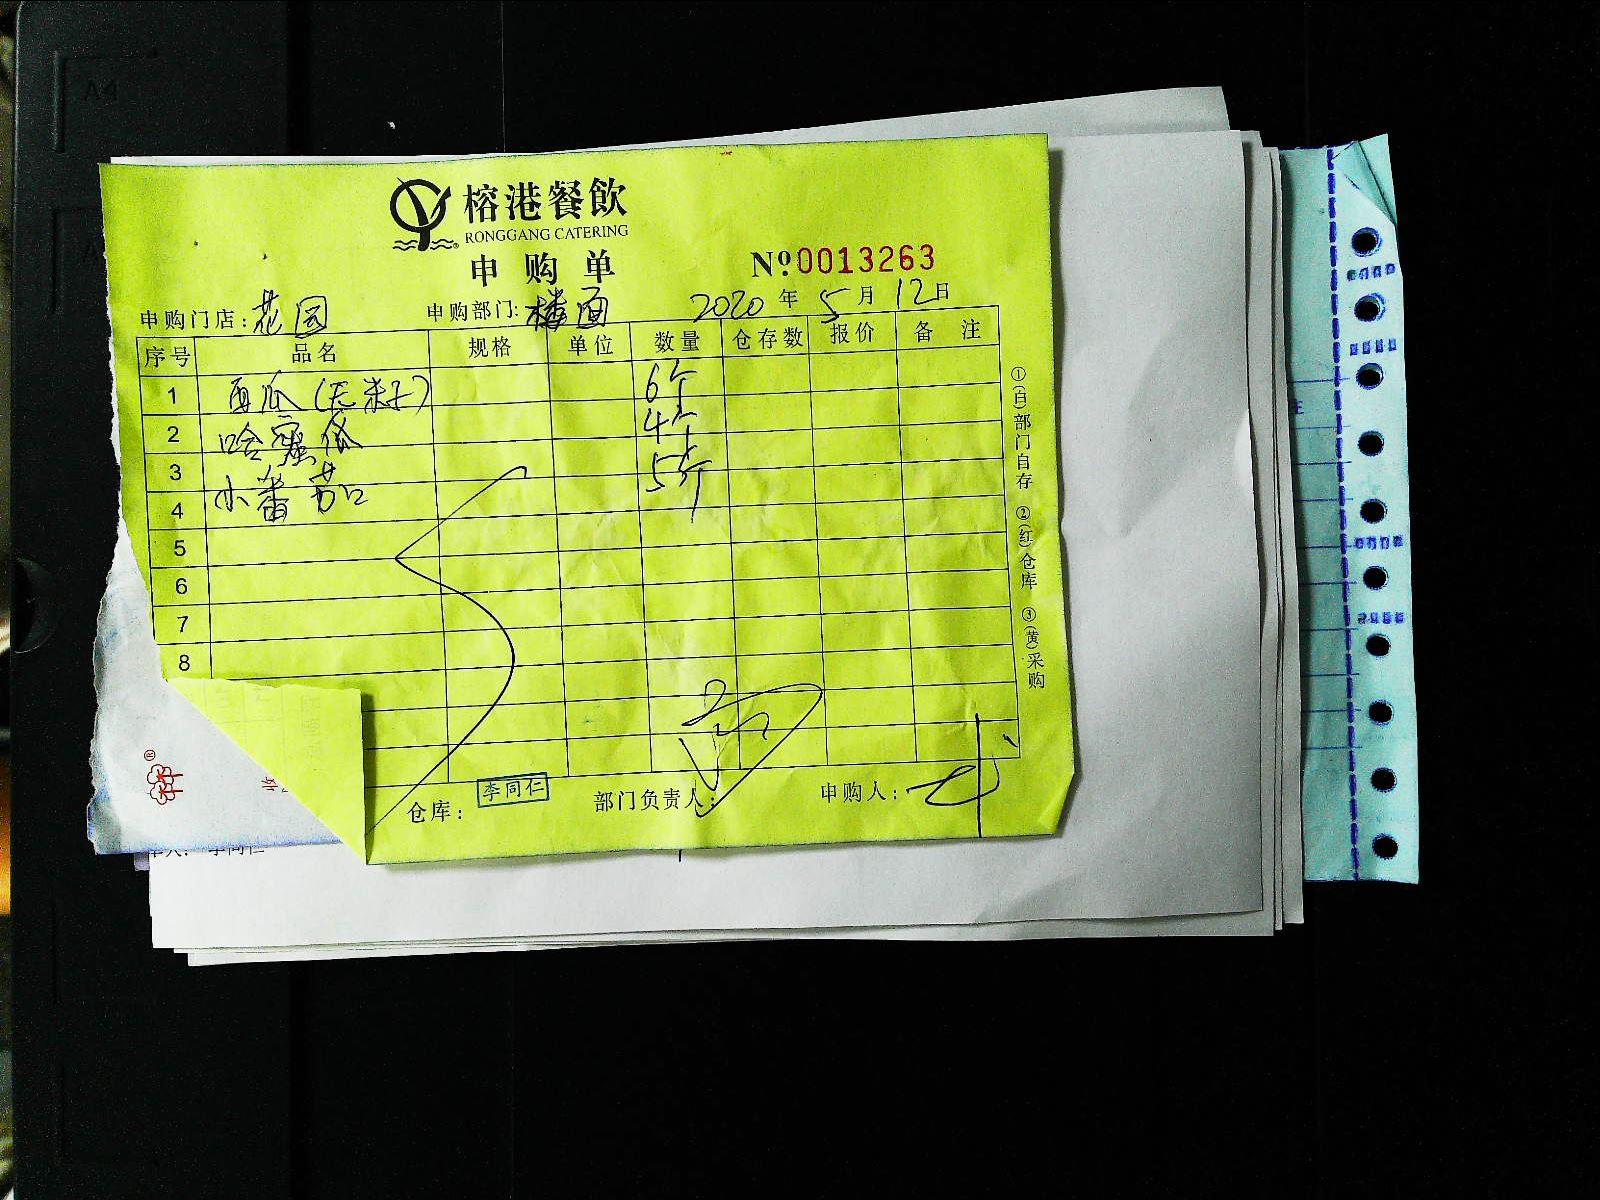 榕港餐飲
RONGGANG CATERING
申购单
Nº 0013263
申购门店: 花园 申购部门: 楼面 2020年5月12日
序号 品名 规格 单位 数量 仓存数 报价 备注
1 西瓜(无籽) 6个
2 哈蜜瓜 4个
3 小番茄 5斤
4
5
6
7
8
仓库: 李同仁 部门负责人: 申购人:
①(白)部门自存 ②(红)仓库 ③(黄)采购
A4